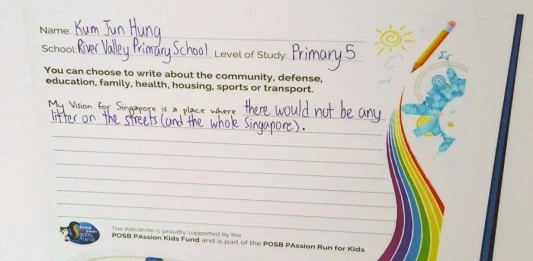 Name: Kum Jun Hung
School: River Valley Primary School Level of Study: Primary 5
You can choose to write about the community, defense,
education, family, health, housing, sports or transport.
My Vision for Singapore is a place where there would not be any
litter on the streets (and the whole Singapore).
The KidsWrite is proudly supported by the
POSB PAssion Kids Fund and is part of the POSB PAssion Run for Kids